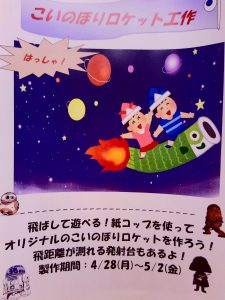 こいのぼりロケット工作
はっしゃ!
飛ばして遊べる!紙コップを使って
オリジナルのこいのぼりロケットを作ろう!
飛距離が測れる発射台もあるよ!
製作期間:4/28(月)~5/2(金)